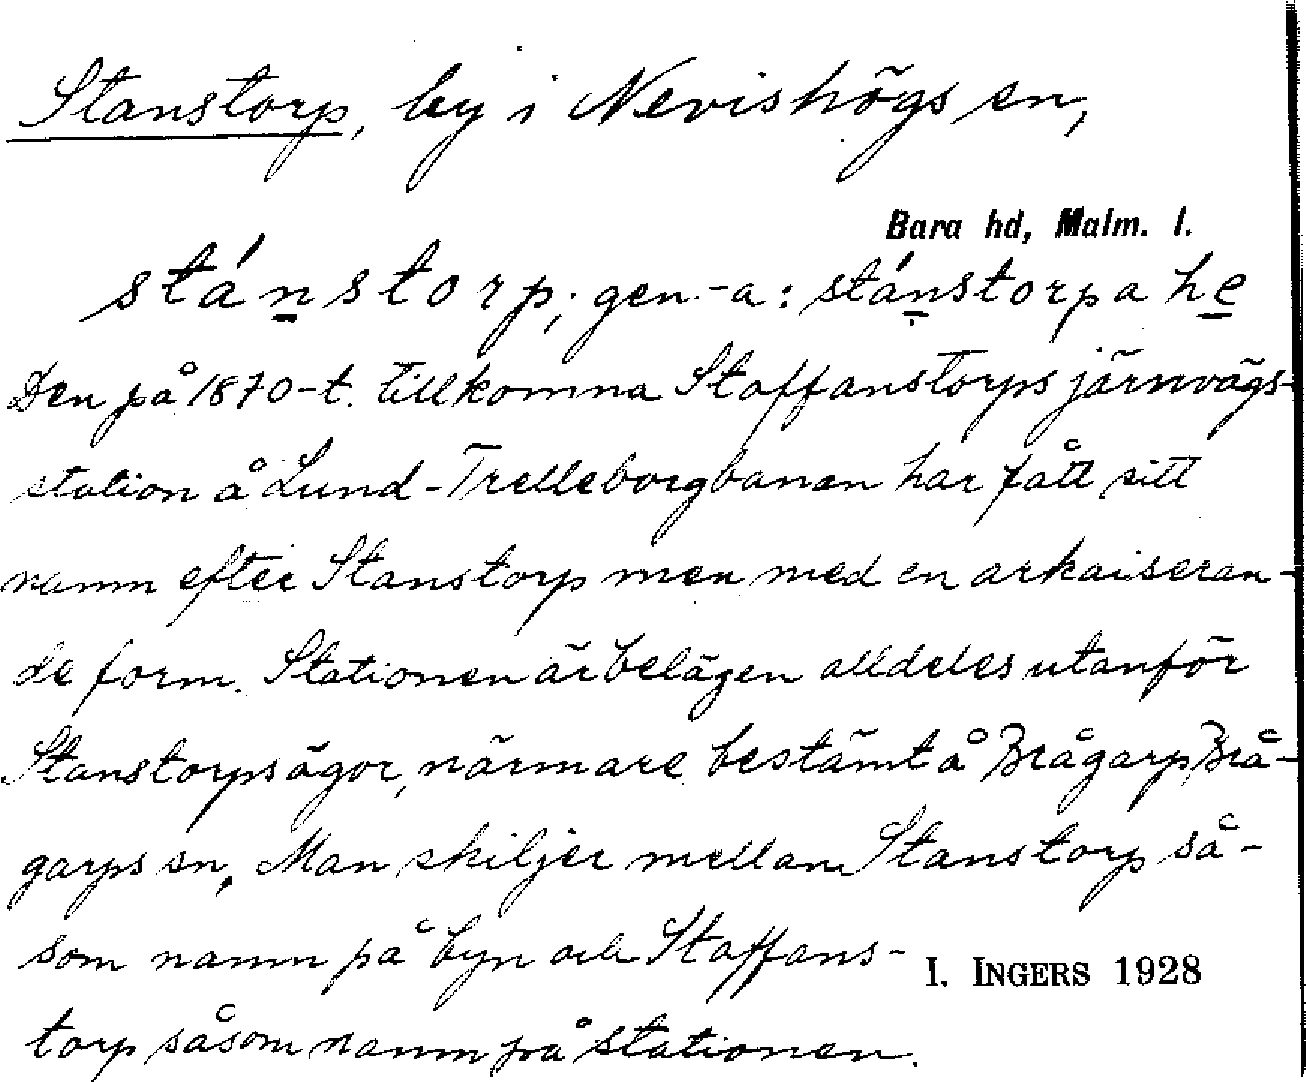 Stanstorp, by i Nevishögs sn,
Bara hd, Malm. l.
stánstorp; gen.-a: stánstorpa he
Den på 1870-t. tillkomna Staffanstorps järnvägs-
station å Lund-Trelleborgbanan har fått sitt
namn efter Stanstorp men med en arkaiseran-
de form. Stationen är belägen alldeles utanför
Stanstorps ägor, närmare bestämt å Brågarp, Brå-
garps sn. Man skiljer mellan Stanstorp så-
som namn på byn och Staffans-
I. INGERS 1928
torp såsom namn på stationen.